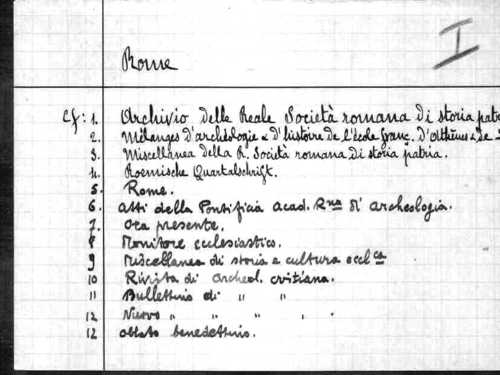 I
Rome
Cf: 1. Archivio della Reale Società romana di storia patri
2. Mélanges d'archéologie & d'histoire de l'école franç. d'Athènes & de
3. Miscellanea della R. Società romana di storia patria.
4. Roemische Quartalschrift.
5. Rome.
6. Atti della Pontificia Acad. Rna di archeologia.
7. Ora presente.
8 Monitore ecclesiastico.
9 Miscellanea di storia e cultura eccl ca
10 Rivista di archeol. cristiana.
11 Bullettino di " "
12 Nuovo " " " " .
12 benedettino.